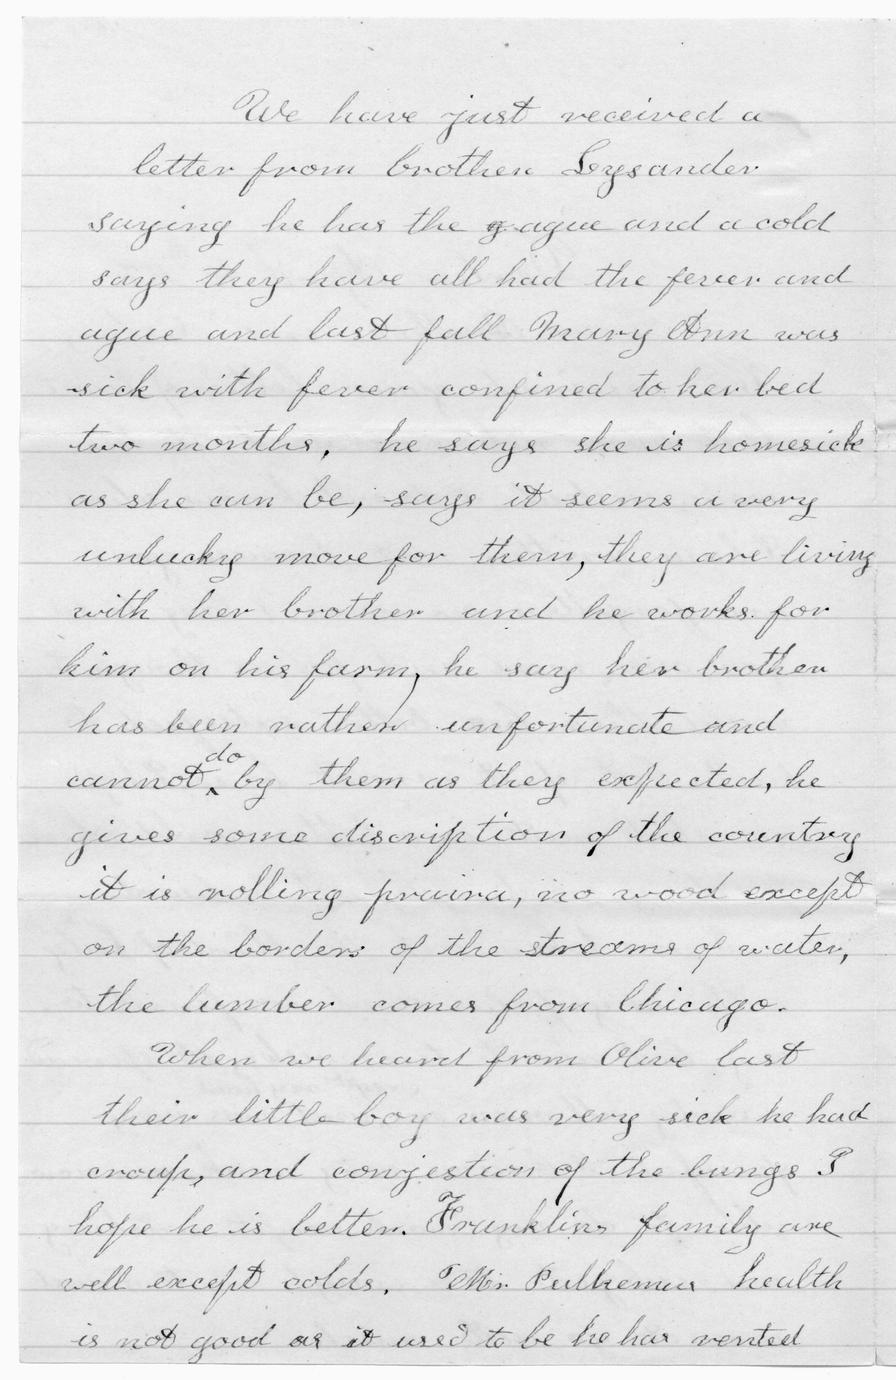 We have just received a
letter from brother Lysander
saying he has the ague and a cold
says they have all had the fever and
ague and last fall Mary Ann was
sick with fever confined to her bed
two months, he says she is homesick
as she can be, says it seems a very
unlucky move for them, they are living
with her brother and he works for
him on his farm, he say her brother
has been rather unfortunate and
cannot do by them as they expected, he
gives some discription of the country
it is rolling praira, no wood except
on the borders of the streams of water,
the lumber comes from Chicago.
When we heard from Olive last
their little boy was very sick he had
croup, and conjestion of the lungs I
hope he is better. Franklins family are
well except colds. Mr. health
is not good as it used to be he has rented